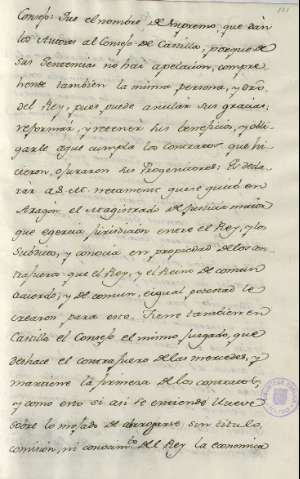 Consejo. Que el nombre de Supremo que dan
los Autores al Consejo de Castilla; porque de
sus Sentencias no hai apelacion, compre
hende tambien la misma persona, y
del Rey, pues puede anular sus gracias;
reformar, y retener sus beneficios, y obli
garle a que cumpla los contratos que hi
cieron, ó juraron sus Progenitores:
rar a S. M. rectamente que se guió en
Aragon el Magistrado de Justicia maior
que egercia jurisdicion entre el Rey, y los
Subditos, y conocia en propiedad de los con
trafueros que el Rey, y el Reino de comun
acuerdo, y de comun, e igual potestad le
crearon para esto. Tiene tambien en
Castilla el Consejo el mismo juzgado, que
deshace el contrafuero de las mercedes, y
mantiene la primera de los contratos,
y como esto si asi se entiende
sobre lo de abrogarse sin titulo,
comision, ni conocim.to del Rey la economica